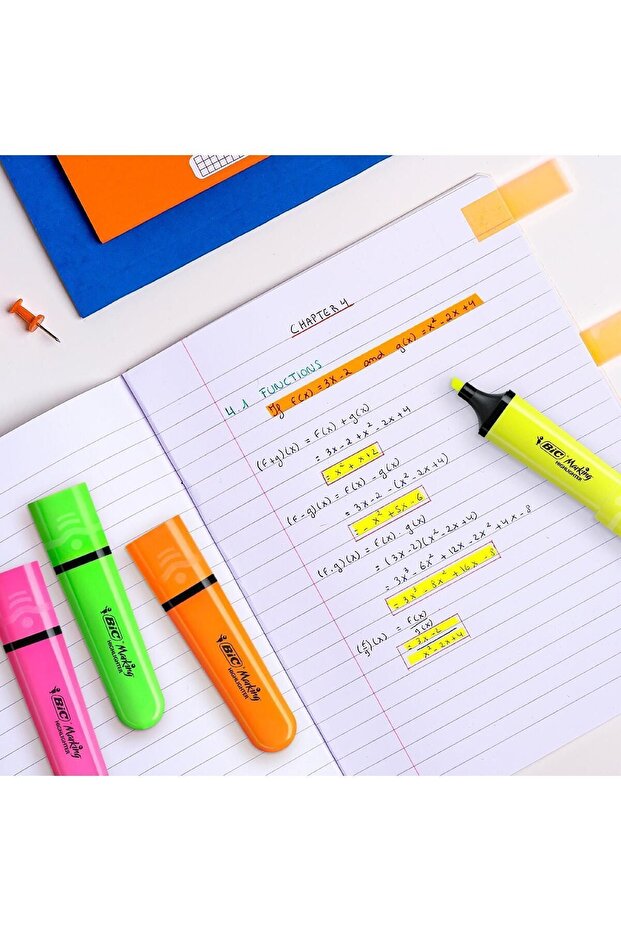 CHAPTER 4
4.1 FUNCTIONS
If f(x) = 3x-2 and g(x) = x² - 2x + 4
(F+g)(x) = F(x) + g(x)
= 3x-2 + x² - 2x + 4
= x² + x + 2
(F-g)(x) = F(x) - g(x)
= 3x-2 - (x² - 2x + 4)
= -x² + 5x - 6
(F.g)(x) = F(x) . g(x)
= (3x-2)(x² - 2x + 4)
= 3x³ - 6x² + 12x - 2x² + 4x - 8
= 3x³ - 8x² + 16x - 8
(F/g)(x) = F(x)/g(x)
= 3x-2/x² - 2x + 4
BiC Marking
HIGHLIGHTER
BiC Marking
HIGHLIGHTER
BiC Marking
HIGHLIGHTER
BiC Marking
HIGHLIGHTER